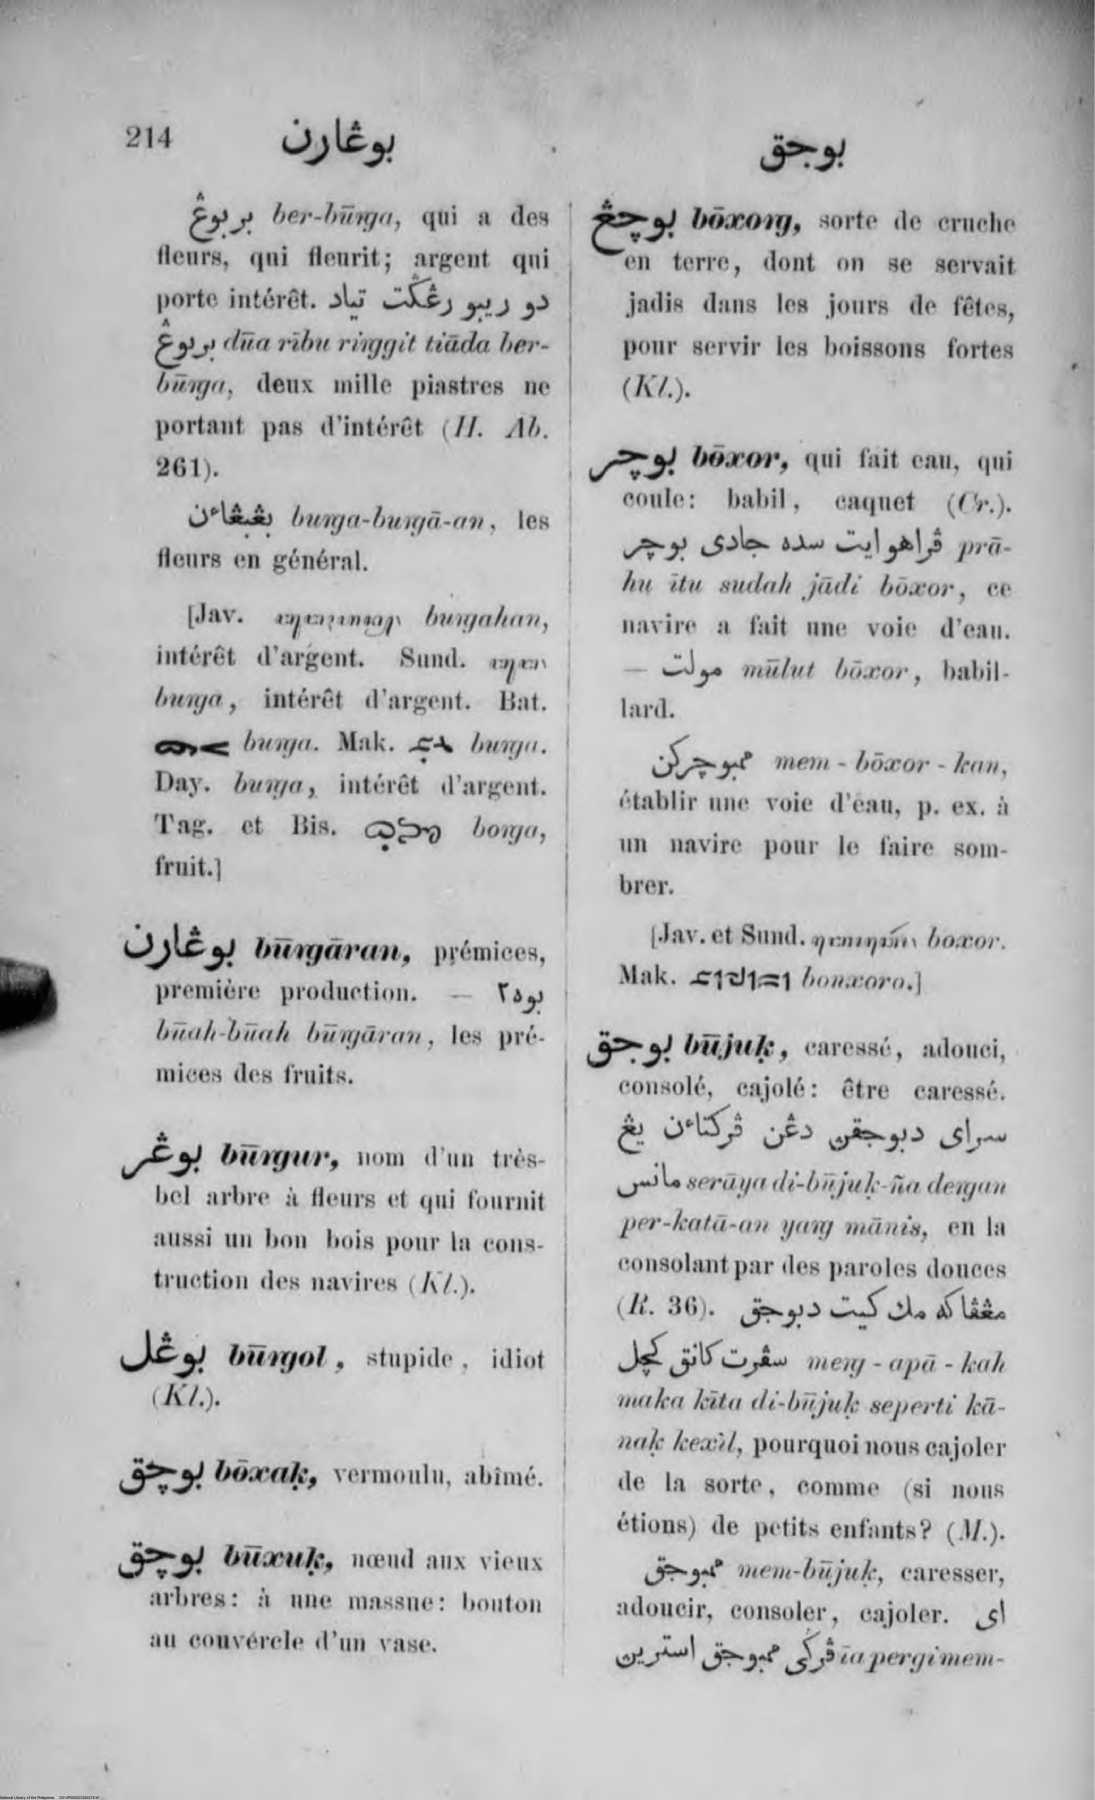 214
بوڠارن
بوجق
بربوڠ ber-būṅga, qui a des
fleurs, qui fleurit; argent qui
porte intérêt. دو ريبو رڠڬت تياد
بربوڠ dūa rību riṅggit tiāda ber-
būṅga, deux mille piastres ne
portant pas d'intérêt (H. Ab.
261).
بڠبڠاءن buṅga-buṅgā-an, les
fleurs en général.
[Jav. buṅgahan,
intérêt d'argent. Sund.
buṅga, intérêt d'argent. Bat.
buṅga. Mak. buṅga.
Day. buṅga, intérêt d'argent.
Tag. et Bis. boṅga,
fruit.]
بوڠارن būṅgāran, prémices,
première production. — بوه٢
būah-būah būṅgāran, les pré-
mices des fruits.
بوڠر būṅgur, nom d'un très-
bel arbre à fleurs et qui fournit
aussi un bon bois pour la cons-
truction des navires (Kl.).
بوڠل būṅgol, stupide, idiot
(Kl.).
بوچق bōxaḳ, vermoulu, abîmé.
بوچق būxuḳ, nœud aux vieux
arbres: à une massue: bouton
au couvercle d'un vase.
بوچڠ bōxoṅg, sorte de cruche
en terre, dont on se servait
jadis dans les jours de fêtes,
pour servir les boissons fortes
(Kl.).
بوچر bōxor, qui fait eau, qui
coule: babil, caquet (Cr.).
ڤراهو ايت سده جادى بوچر prā-
hu ītu sudah jādi bōxor, ce
navire a fait une voie d'eau.
— مولت mūlut bōxor, babil-
lard.
ممبوچركن mem-bōxor-kan,
établir une voie d'eau, p. ex. à
un navire pour le faire som-
brer.
[Jav. et Sund. boxor.
Mak. bonxoro.]
بوجق būjuḳ, caressé, adouci,
consolé, cajolé: être caressé.
سراى دبوجقڽ دڠن ڤركتاءن يڠ
مانس serāya di-būjuḳ-ña deṅgan
per-katā-an yaṅg mānis, en la
consolant par des paroles douces
(R. 36). مڠڤاكه مك كيت دبوجق
سڤرت كانق كچل meṅg-apā-kah
maka kīta di-būjuḳ seperti kā-
naḳ kexìl, pourquoi nous cajoler
de la sorte, comme (si nous
étions) de petits enfants? (M.).
ممبوجق mem-būjuḳ, caresser,
adoucir, consoler, cajoler. اى
ڤرڬى ممبوجق استرين īa pergi mem-